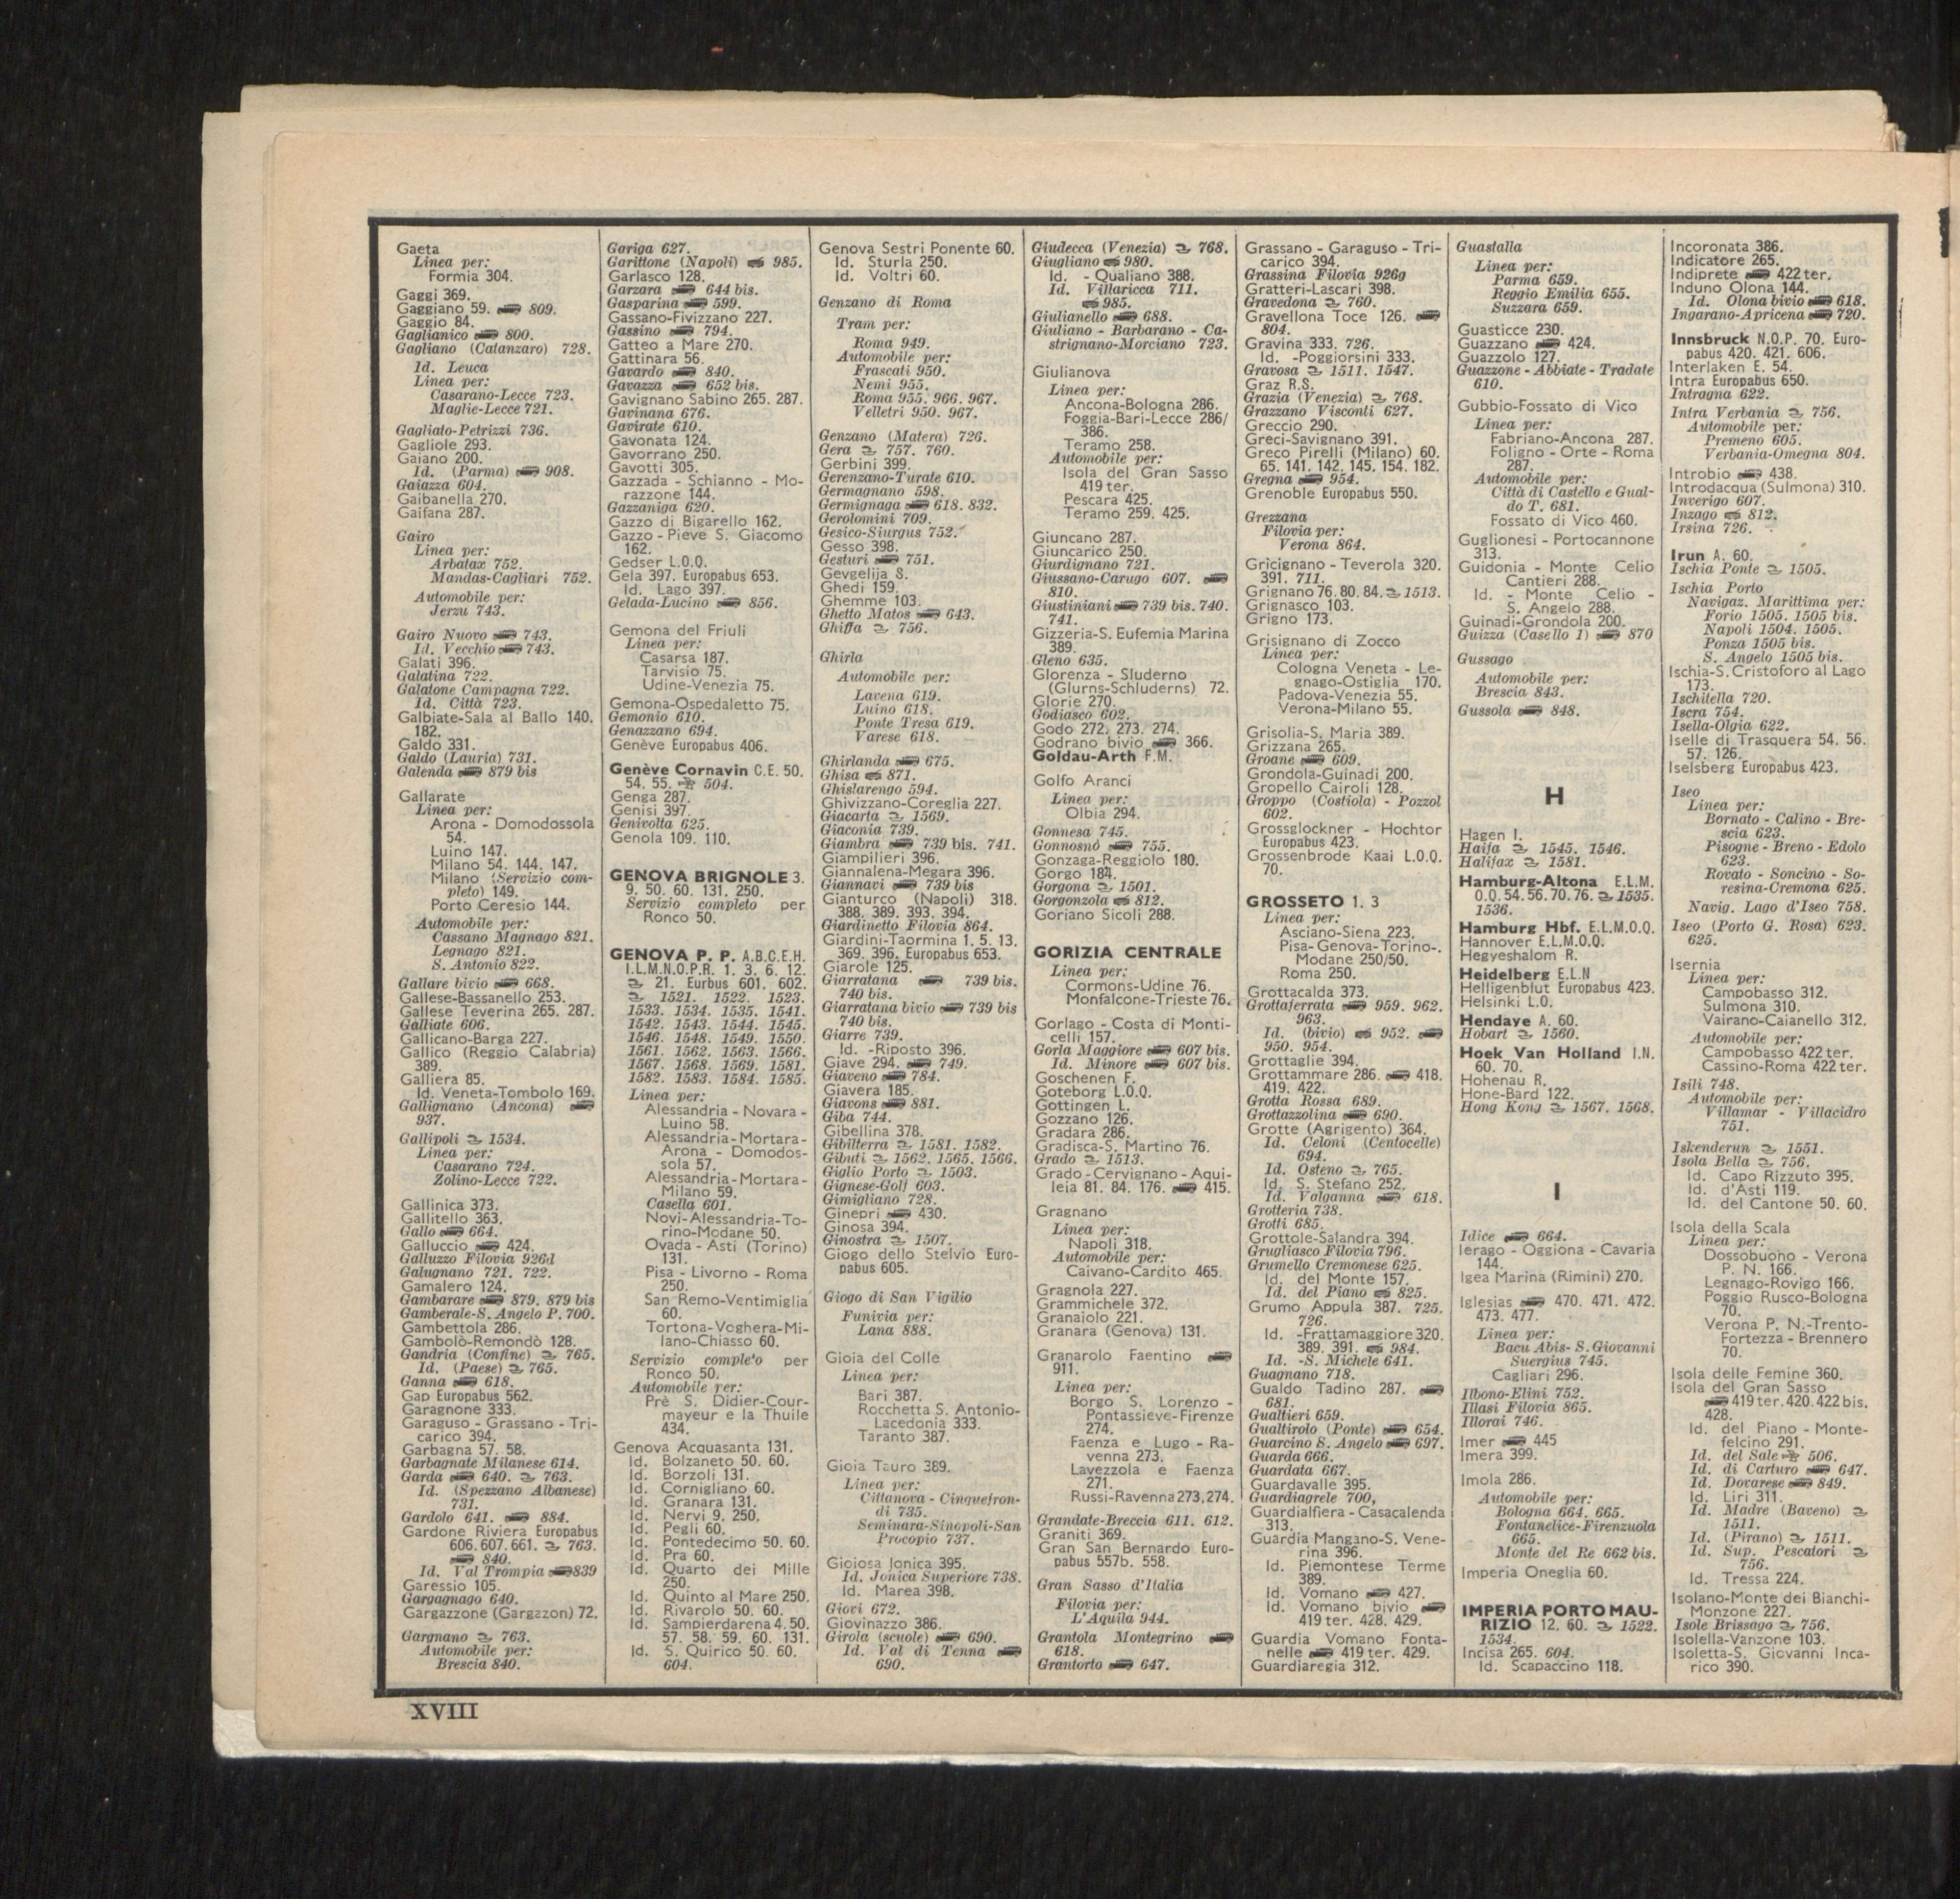 Gaeta
Linea per:
Formia 304.
Gaggi 369.
Gaggiano 59. 809.
Gaggio 84.
Gaglianico 800.
Gagliano (Catanzaro) 728.
Id. Leuca
Linea per:
Casarano-Lecce 723.
Maglie-Lecce 721.
Gagliato-Petrizzi 736.
Gagliole 293.
Gaiano 200.
Id. (Parma) 908.
Gaiazza 604.
Gaibanella 270.
Gaifana 287.
Gairo
Linea per:
Arbatax 752.
Mandas-Cagliari 752.
Automobile per:
Jerzu 743.
Gairo Nuovo 743.
Id. Vecchio 743.
Galati 396.
Galatina 722.
Galatone Campagna 722.
Id. Città 723.
Galbiate-Sala al Ballo 140.
182.
Galdo 331.
Galdo (Lauria) 731.
Galenda 879 bis
Gallarate
Linea per:
Arona - Domodossola
54.
Luino 147.
Milano 54. 144. 147.
Milano (Servizio com-
pleto) 149.
Porto Ceresio 144.
Automobile per:
Cassano Magnago 821.
Legnago 821.
S. Antonio 822.
Gallare bivio 668.
Gallese-Bassanello 253.
Gallese Teverina 265. 287.
Galliate 606.
Gallicano-Barga 227.
Gallico (Reggio Calabria)
389.
Galliera 85.
Id. Veneta-Tombolo 169.
Gallignano (Ancona)
937.
Gallipoli 1534.
Linea per:
Casarano 724.
Zolino-Lecce 722.
Gallinica 373.
Gallitello 363.
Gallo 664.
Galluccio 424.
Galluzzo Filovia 926d
Galugnano 721. 722.
Gamalero 124.
Gambarare 879. 879 bis
Gamberale-S. Angelo P. 700.
Gambettola 286.
Gambolò-Remondò 128.
Gandria (Confine) 765.
Id. (Paese) 765.
Ganna 618.
Gap Europabus 562.
Garagnone 333.
Garaguso - Grassano - Tri-
carico 394.
Garbagna 57. 58.
Garbagnate Milanese 614.
Garda 640. 763.
Id. (Spezzano Albanese)
731.
Gardolo 641. 884.
Gardone Riviera Europabus
606. 607. 661. 763.
840.
Id. Val Trompia 839
Garessio 105.
Gargagnago 640.
Gargazzone (Gargazon) 72.
Gargnano 763.
Automobile per:
Brescia 840.
Gariga 627.
Garittone (Napoli) 985.
Garlasco 128.
Garzara 644 bis.
Gasparina 599.
Gassano-Fivizzano 227.
Gassino 794.
Gatteo a Mare 270.
Gattinara 56.
Gavardo 840.
Gavazza 652 bis.
Gavignano Sabino 265. 287.
Gavinana 676.
Gavirate 610.
Gavonata 124.
Gavorrano 250.
Gavotti 305.
Gazzada - Schianno - Mo-
razzone 144.
Gazzaniga 620.
Gazzo di Bigarello 162.
Gazzo - Pieve S. Giacomo
162.
Gedser L.O.Q.
Gela 397. Europabus 653.
Id. Lago 397.
Gelada-Lucino 856.
Gemona del Friuli
Linea per:
Casarsa 187.
Tarvisio 75.
Udine-Venezia 75.
Gemona-Ospedaletto 75.
Gemonio 610.
Genazzano 694.
Genève Europabus 406.
Genève Cornavin C.E. 50.
54. 55. 504.
Genga 287.
Genisi 397.
Genivolta 625.
Genola 109. 110.
GENOVA BRIGNOLE 3.
9. 50. 60. 131. 250.
Servizio completo per
Ronco 50.
GENOVA P. P. A.B.C.E.H.
I.L.M.N.O.P.R. 1. 3. 6. 12.
21. Eurbus 601. 602.
1521. 1522. 1523.
1533. 1534. 1535. 1541.
1542. 1543. 1544. 1545.
1546. 1548. 1549. 1550.
1561. 1562. 1563. 1566.
1567. 1568. 1569. 1581.
1582. 1583. 1584. 1585.
Linea per:
Alessandria - Novara -
Luino 58.
Alessandria-Mortara-
Arona - Domodos-
sola 57.
Alessandria-Mortara-
Milano 59.
Casella 601.
Novi-Alessandria-To-
rino-Modane 50.
Ovada - Asti (Torino)
131.
Pisa - Livorno - Roma
250.
San Remo-Ventimiglia
60.
Tortona-Voghera-Mi-
lano-Chiasso 60.
Servizio completo per
Ronco 50.
Automobile per:
Prè S. Didier-Cour-
mayeur e la Thuile
434.
Genova Acquasanta 131.
Id. Bolzaneto 50. 60.
Id. Borzoli 131.
Id. Cornigliano 60.
Id. Granara 131.
Id. Nervi 9. 250.
Id. Pegli 60.
Id. Pontedecimo 50. 60.
Id. Pra 60.
Id. Quarto dei Mille
250.
Id. Quinto al Mare 250.
Id. Rivarolo 50. 60.
Id. Sampierdarena 4. 50.
57. 58. 59. 60. 131.
Id. S. Quirico 50. 60.
604.
Genova Sestri Ponente 60.
Id. Sturla 250.
Id. Voltri 60.
Genzano di Roma
Tram per:
Roma 949.
Automobile per:
Frascati 950.
Nemi 955.
Roma 955. 966. 967.
Velletri 950. 967.
Genzano (Matera) 726.
Gera 757. 760.
Gerbini 399.
Gerenzano-Turate 610.
Germagnano 598.
Germignaga 618. 832.
Gerolomini 709.
Gesico-Siurgus 752.
Gesso 398.
Gesturi 751.
Gevgelija S.
Ghedi 159.
Ghemme 103.
Ghetto Matos 643.
Ghiffa 756.
Ghirla
Automobile per:
Lavena 619.
Luino 618.
Ponte Tresa 619.
Varese 618.
Ghirlanda 675.
Ghisa 871.
Ghislarengo 594.
Ghivizzano-Coreglia 227.
Giacarta 1569.
Giaconia 739.
Giambra 739 bis. 741.
Giampilieri 396.
Giannalena-Megara 396.
Giannavi 739 bis
Gianturco (Napoli) 318.
388. 389. 393. 394.
Giardinetto Filovia 864.
Giardini-Taormina 1. 5. 13.
369. 396. Europabus 653.
Giarole 125.
Giarratana 739 bis.
740 bis.
Giarratana bivio 739 bis
740 bis.
Giarre 739.
Id. -Riposto 396.
Giave 294. 749.
Giaveno 784.
Giavera 185.
Giavons 881.
Giba 744.
Gibellina 378.
Gibilterra 1581. 1582.
Gibuti 1562. 1565. 1566.
Giglio Porto 1503.
Gignese-Golf 603.
Gimigliano 728.
Ginepri 430.
Ginosa 394.
Ginostra 1507.
Giogo dello Stelvio Euro-
pabus 605.
Giogo di San Vigilio
Funivia per:
Lana 888.
Gioia del Colle
Linea per:
Bari 387.
Rocchetta S. Antonio-
Lacedonia 333.
Taranto 387.
Gioia Tauro 389.
Linea per:
Cittanova - Cinquefron-
di 735.
Seminara-Sinopoli-San
Procopio 737.
Gioiosa Jonica 395.
Id. Jonica Superiore 738.
Id. Marea 398.
Giovi 672.
Giovinazzo 386.
Girola (scuole) 690.
Id. Val di Tenna
690.
Giudecca (Venezia) 768.
Giugliano 980.
Id. - Qualiano 388.
Id. Villaricca 711.
985.
Giulianello 688.
Giuliano - Barbarano - Ca-
strignano-Morciano 723.
Giulianova
Linea per:
Ancona-Bologna 286.
Foggia-Bari-Lecce 286/
386.
Teramo 258.
Automobile per:
Isola del Gran Sasso
419 ter.
Pescara 425.
Teramo 259. 425.
Giuncano 287.
Giuncarico 250.
Giurdignano 721.
Giussano-Carugo 607.
810.
Giustiniani 739 bis. 740.
741.
Gizzeria-S. Eufemia Marina
389.
Gleno 635.
Glorenza - Sluderno
(Glurns-Schluderns) 72.
Glorie 270.
Godiasco 602.
Godo 272. 273. 274.
Godrano bivio 366.
Goldau-Arth F.M.
Golfo Aranci
Linea per:
Olbia 294.
Gonnesa 745.
Gonnosnò 755.
Gonzaga-Reggiolo 180.
Gorgo 184.
Gorgona 1501.
Gorgonzola 812.
Goriano Sicoli 288.
GORIZIA CENTRALE
Linea per:
Cormons-Udine 76.
Monfalcone-Trieste 76.
Gorlago - Costa di Monti-
celli 157.
Gorla Maggiore 607 bis.
Id. Minore 607 bis.
Goschenen F.
Goteborg L.O.Q.
Gottingen L.
Gozzano 126.
Gradara 286.
Gradisca-S. Martino 76.
Grado 1513.
Grado - Cervignano - Aqui-
leia 81. 84. 176. 415.
Gragnano
Linea per:
Napoli 318.
Automobile per:
Caivano-Cardito 465.
Gragnola 227.
Grammichele 372.
Granaiolo 221.
Granara (Genova) 131.
Granarolo Faentino
911.
Linea per:
Borgo S. Lorenzo -
Pontassieve-Firenze
274.
Faenza e Lugo - Ra-
venna 273.
Lavezzola e Faenza
271.
Russi-Ravenna 273, 274.
Grandate-Breccia 611. 612.
Graniti 369.
Gran San Bernardo Euro-
pabus 557b. 558.
Gran Sasso d'Italia
Filovia per:
L'Aquila 944.
Grantola Montegrino
618.
Grantorto 647.
Grassano - Garaguso - Tri-
carico 394.
Grassina Filovia 926g
Gratteri-Lascari 398.
Gravedona 760.
Gravellona Toce 126.
804.
Gravina 333. 726.
Id. -Poggiorsini 333.
Gravosa 1511. 1547.
Graz R.S.
Grazia (Venezia) 768.
Grazzano Visconti 627.
Greccio 290.
Greci-Savignano 391.
Greco Pirelli (Milano) 60.
65. 141. 142. 145. 154. 182.
Gregna 954.
Grenoble Europabus 550.
Grezzana
Filovia per:
Verona 864.
Gricignano - Teverola 320.
391. 711.
Grignano 76. 80. 84. 1513.
Grignasco 103.
Grigno 173.
Grisignano di Zocco
Linea per:
Cologna Veneta - Le-
gnago-Ostiglia 170.
Padova-Venezia 55.
Verona-Milano 55.
Grisolia-S. Maria 389.
Grizzana 265.
Groane 609.
Grondola-Guinadi 200.
Gropello Cairoli 128.
Groppo (Costiola) - Pozzol
602.
Grossglockner - Hochtor
Europabus 423.
Grossenbrode Kaai L.O.Q.
70.
GROSSETO 1. 3
Linea per:
Asciano-Siena 223.
Pisa-Genova-Torino-.
Modane 250/50.
Roma 250.
Grottacalda 373.
Grottaferrata 959. 962.
963.
Id. (bivio) 952.
950. 954.
Grottaglie 394.
Grottammare 286. 418.
419. 422.
Grotta Rossa 689.
Grottazzolina 690.
Grotte (Agrigento) 364.
Id. Celoni (Centocelle)
694.
Id. Osteno 765.
Id. S. Stefano 252.
Id. Valganna 618.
Grotteria 738.
Grotti 685.
Grottole-Salandra 394.
Grugliasco Filovia 796.
Grumello Cremonese 625.
Id. del Monte 157.
Id. del Piano 825.
Grumo Appula 387. 725.
726.
Id. -Frattamaggiore 320.
389. 391. 984.
Id. -S. Michele 641.
Guagnano 718.
Gualdo Tadino 287.
681.
Gualtieri 659.
Gualtirolo (Ponte) 654.
Guarcino S. Angelo 697.
Guarda 666.
Guardata 667.
Guardavalle 395.
Guardiagrele 700,
Guardialfiera - Casacalenda
313.
Guardia Mangano-S. Vene-
rina 396.
Id. Piemontese Terme
389.
Id. Vomano 427.
Id. Vomano bivio
419 ter. 428. 429.
Guardia Vomano Fonta-
nelle 419 ter. 429.
Guardiaregia 312.
Guastalla
Linea per:
Parma 659.
Reggio Emilia 655.
Suzzara 659.
Guasticce 230.
Guazzano 424.
Guazzolo 127.
Guazzone - Abbiate - Tradate
610.
Gubbio-Fossato di Vico
Linea per:
Fabriano-Ancona 287.
Foligno - Orte - Roma
287.
Automobile per:
Città di Castello e Gual-
do T. 681.
Fossato di Vico 460.
Guglionesi - Portocannone
313.
Guidonia - Monte Celio
Cantieri 288.
Id. - Monte Celio -
S. Angelo 288.
Guinadi-Grondola 200.
Guizza (Casello 1) 870
Gussago
Automobile per:
Brescia 843.
Gussola 848.
H
Hagen I.
Haifa 1545. 1546.
Halifax 1581.
Hamburg-Altona E.L.M.
O.Q. 54. 56. 70. 76. 1535.
1536.
Hamburg Hbf. E.L.M.O.Q.
Hannover E.L.M.O.Q.
Hegyeshalom R.
Heidelberg E.L.N
Helligenblut Europabus 423.
Helsinki L.O.
Hendaye A. 60.
Hobart 1560.
Hoek Van Holland I.N.
60. 70.
Hohenau R.
Hone-Bard 122.
Hong Kong 1567. 1568.
I
Idice 664.
Ierago - Oggiona - Cavaria
144.
Igea Marina (Rimini) 270.
Iglesias 470. 471. 472.
473. 477.
Linea per:
Bacu Abis- S. Giovanni
Suergius 745.
Cagliari 296.
Ilbono-Elini 752.
Illasi Filovia 865.
Illorai 746.
Imer 445
Imera 399.
Imola 286.
Automobile per:
Bologna 664. 665.
Fontanelice-Firenzuola
665.
Monte del Re 662 bis.
Imperia Oneglia 60.
IMPERIA PORTO MAU-
RIZIO 12. 60. 1522.
1534.
Incisa 265. 604.
Id. Scapaccino 118.
Incoronata 386.
Indicatore 265.
Indiprete 422 ter.
Induno Olona 144.
Id. Olona bivio 618.
Ingarano-Apricena 720.
Innsbruck N.O.P. 70. Euro-
pabus 420. 421. 606.
Interlaken E. 54.
Intra Europabus 650.
Intragna 622.
Intra Verbania 756.
Automobile per:
Premeno 605.
Verbania-Omegna 804.
Introbio 438.
Introdacqua (Sulmona) 310.
Inverigo 607.
Inzago 812.
Irsina 726.
Irun A. 60.
Ischia Ponte 1505.
Ischia Porto
Navigaz. Marittima per:
Forio 1505. 1505 bis.
Napoli 1504. 1505.
Ponza 1505 bis.
S. Angelo 1505 bis.
Ischia-S. Cristoforo al Lago
173.
Ischitella 720.
Iscra 754.
Isella-Olgia 622.
Iselle di Trasquera 54. 56.
57. 126.
Iselsberg Europabus 423.
Iseo
Linea per:
Bornato - Calino - Bre-
scia 623.
Pisogne - Breno - Edolo
623.
Rovato - Soncino - So-
resina-Cremona 625.
Navig. Lago d'Iseo 758.
Iseo (Porto G. Rosa) 623.
625.
Isernia
Linea per:
Campobasso 312.
Sulmona 310.
Vairano-Caianello 312.
Automobile per:
Campobasso 422 ter.
Cassino-Roma 422 ter.
Isili 748.
Automobile per:
Villamar - Villacidro
751.
Iskenderun 1551.
Isola Bella 756.
Id. Capo Rizzuto 395.
Id. d'Asti 119.
Id. del Cantone 50. 60.
Isola della Scala
Linea per:
Dossobuono - Verona
P. N. 166.
Legnago-Rovigo 166.
Poggio Rusco-Bologna
70.
Verona P. N.-Trento-
Fortezza - Brennero
70.
Isola delle Femine 360.
Isola del Gran Sasso
419 ter. 420. 422 bis.
428.
Id. del Piano - Monte-
felcino 291.
Id. del Sale 506.
Id. di Carturo 647.
Id. Dovarese 849.
Id. Liri 311.
Id. Madre (Baveno)
1511.
Id. (Pirano) 1511.
Id. Sup. Pescatori
756.
Id. Tressa 224.
Isolano-Monte dei Bianchi-
Monzone 227.
Isole Brissago 756.
Isolella-Vanzone 103.
Isoletta-S. Giovanni Inca-
rico 390.
XVIII